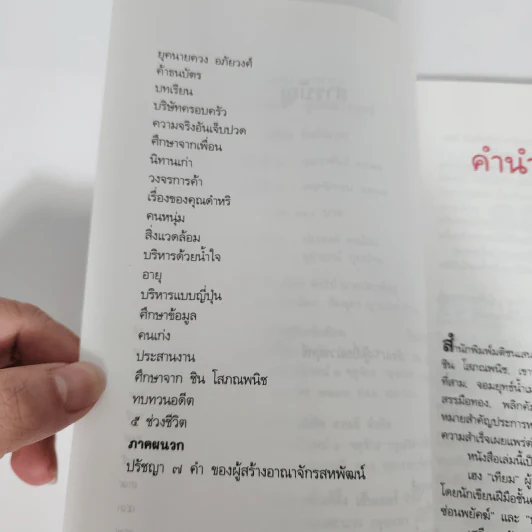 ยุคนายควง อภัยวงศ์
ค้าธนบัตร
บทเรียน
บริษัทครอบครัว
ความจริงอันเจ็บปวด
ศึกษาจากเพื่อน
นิทานเก่า
วงจรการค้า
เรื่องของคุณดำหริ
คนหนุ่ม
สิ่งแวดล้อม
บริหารด้วยน้ำใจ
อายุ
บริหารแบบญี่ปุ่น
ศึกษาข้อมูล
คนเก่ง
ประสานงาน
ศึกษาจาก ชิน โสภณพนิช
ทบทวนอดีต
๕ ช่วงชีวิต
ภาคผนวก
ปรัชญา ๗ คำ ของผู้สร้างอาณาจักรสหพัฒน์
คำนำ
สำนักพิมพ์มติชนเสน
ชิน โสภณพนิช. เขา
ที่สาม. จอมยุทธ์น้ำเ
สรรมือทอง. พลิกคั
หมายสำคัญประการห
ความสำเร็จเผยแพร่ต่
หนังสือเล่มนี้เป็
เฮง "เทียม" ผู้
โดยนักเขียนฝีมือชั้น
ซ่อนพยัคฆ์" และ "